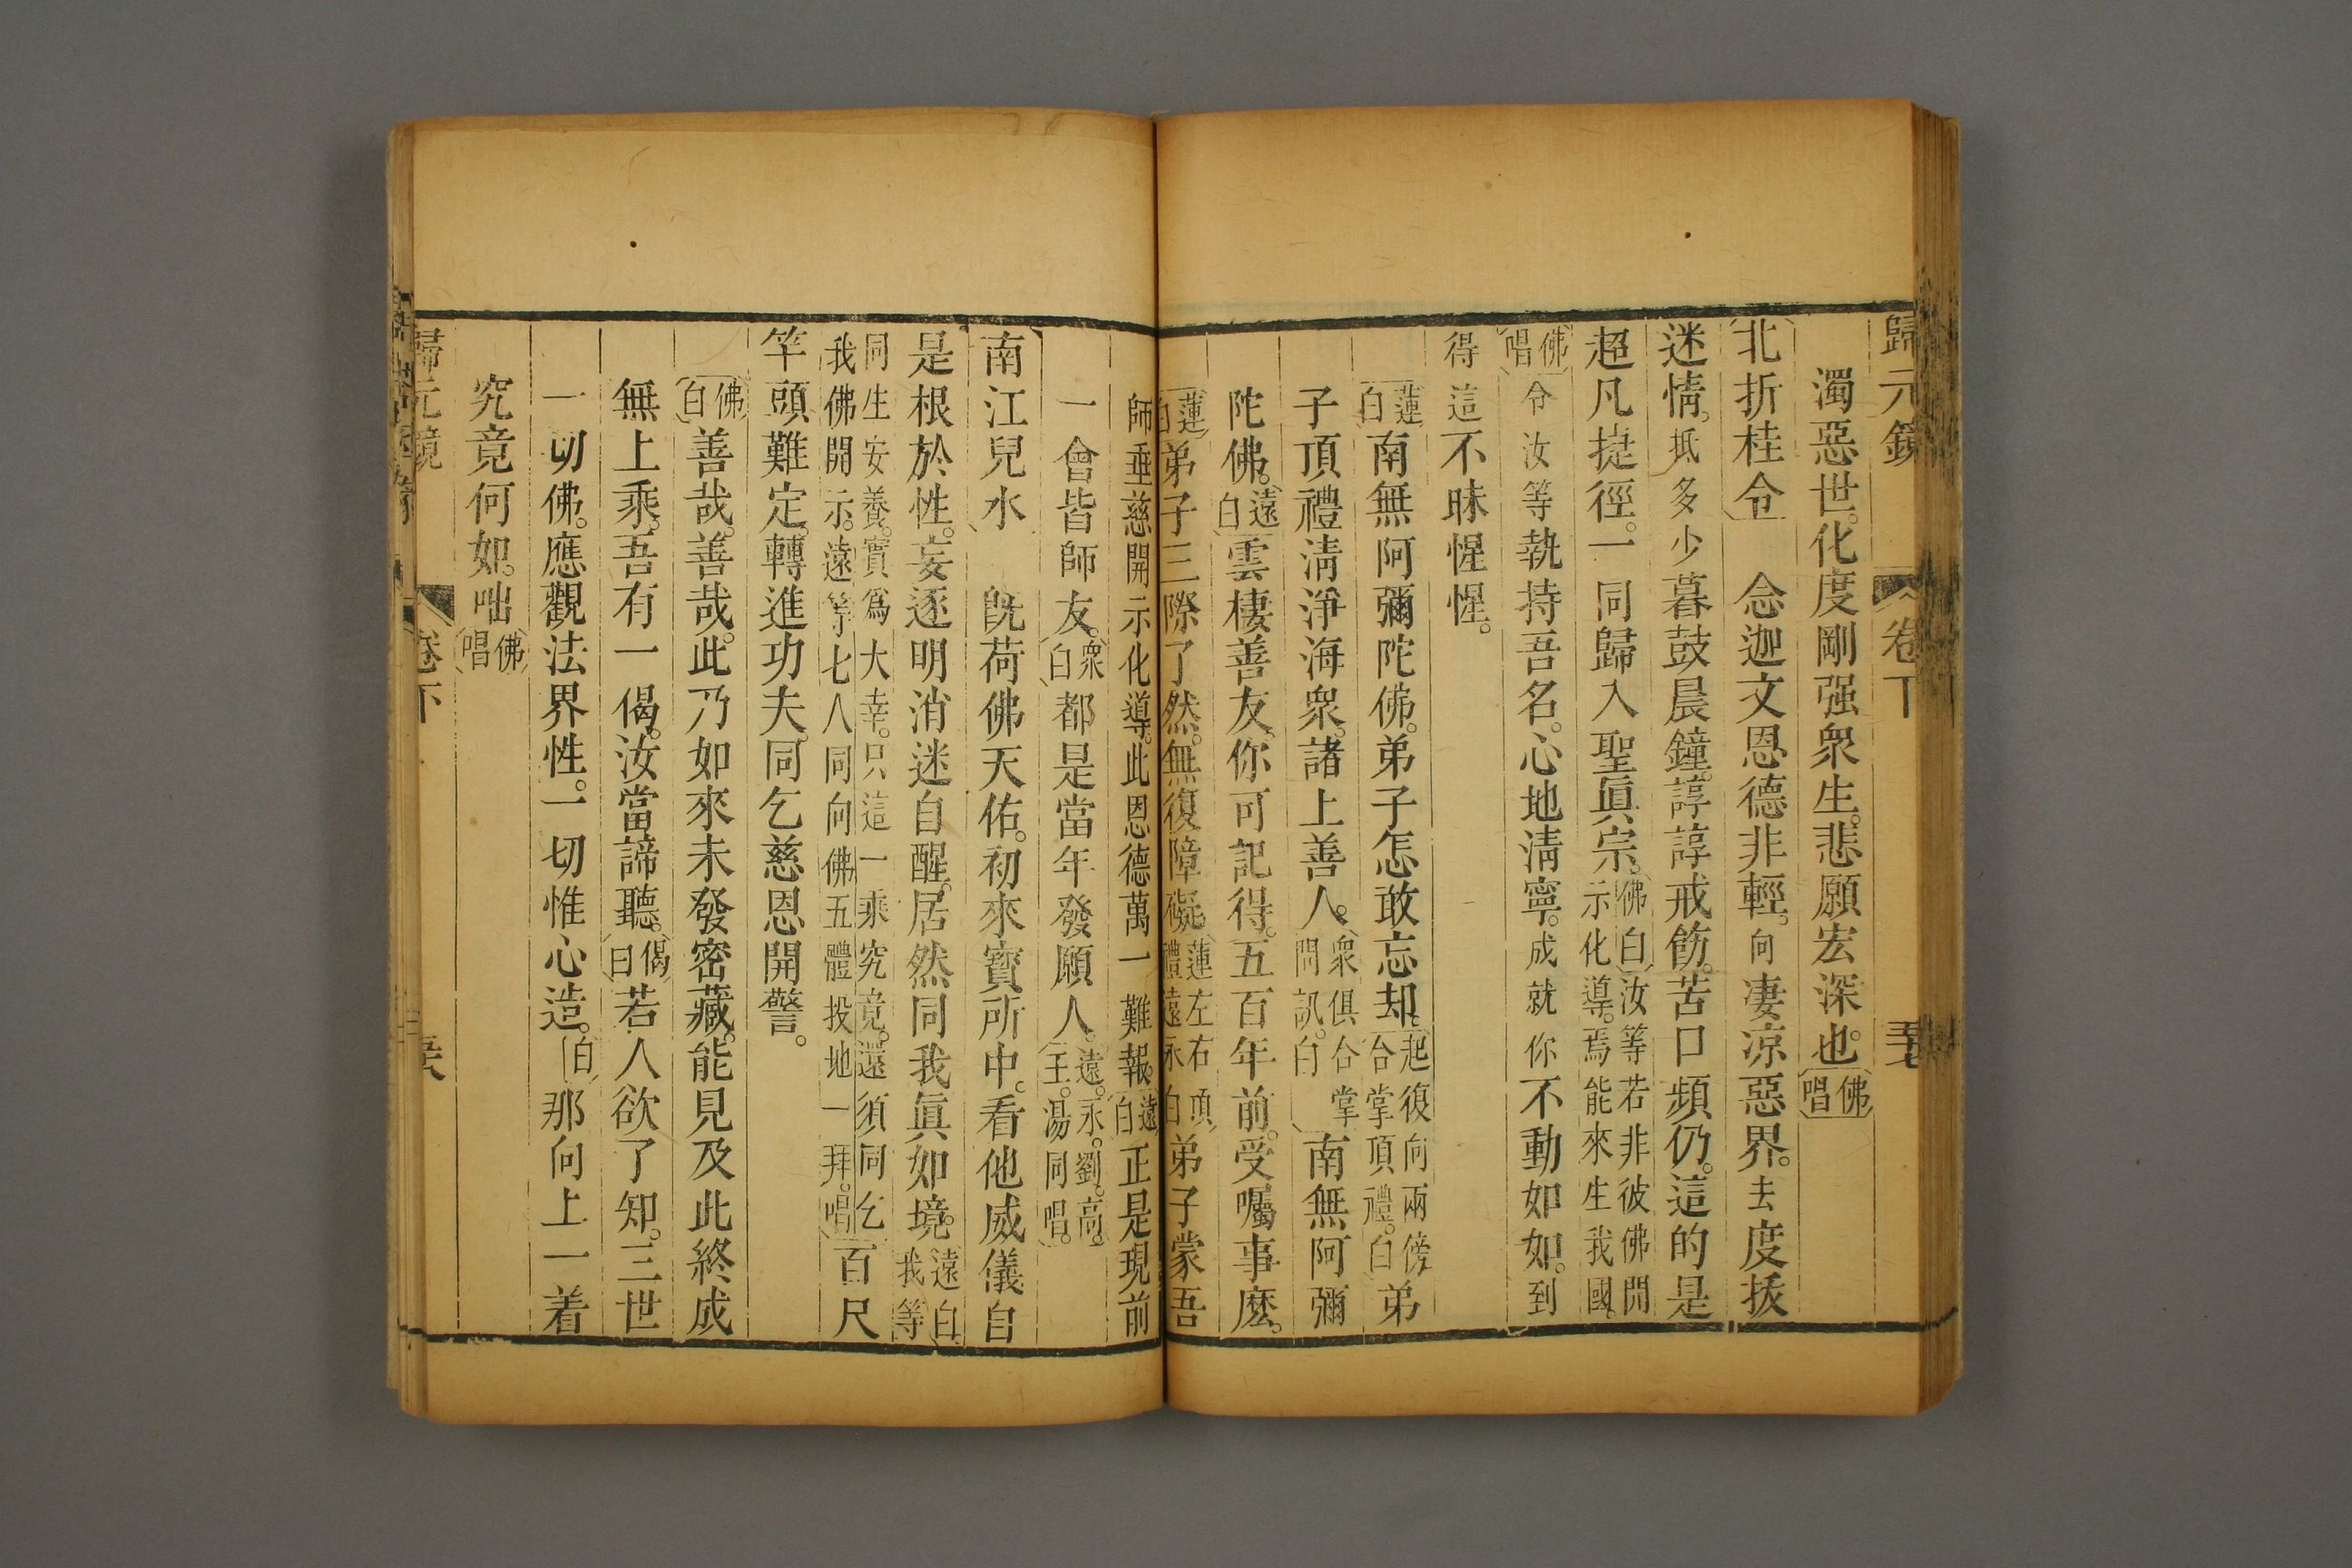 歸元鏡 卷下
濁惡世。化度剛强衆生。悲願宏深也。佛唱
北折桂令 念迦文恩德非輕。向凄凉惡界。去度拔
迷情。抵多少暮鼓晨鐘。諄諄戒飭。苦口頻仍。這的是
超凡捷徑。一同歸入聖眞宗。佛白汝等若非彼佛開示化導。焉能來生我國。
佛唱令汝等執持吾名。心地淸寧。成就你不動如如。到
得這不昧惺惺。
蓮白南無阿彌陀佛。弟子怎敢忘却。起復向兩傍合掌頂禮。白弟
子頂禮淸淨海衆。諸上善人。衆俱合掌問訊。白南無阿彌
陀佛。遠白雲棲善友。你可記得。五百年前。受囑事麽。
蓮白弟子三際了然。無復障礙。蓮左右頂禮遠永白弟子蒙吾
師垂慈開示化導。此恩德萬一難報。遠白正是現前
一會皆師友。衆白都是當年發願人。遠。永。劉。高。王。湯同唱。
南江兒水 旣荷佛天佑。初來寳所中。看他威儀自
是根於性。妄逐明消迷自醒。居然同我眞如境。遠白我等
同生安養。實爲大幸。只這一乘究竟。還須同乞我佛開示。遠等七八同向佛五體投地一拜。唱百尺
竿頭難定。轉進功夫。同乞慈恩開警。
佛白善哉。善哉。此乃如來未發密藏。能見及此終成
無上乘。吾有一偈。汝當諦聽。偈曰若人欲了知。三世
一切佛。應觀法界性。一切惟心造。白那向上一着
究竟何如。咄佛唱
歸元鏡 卷下